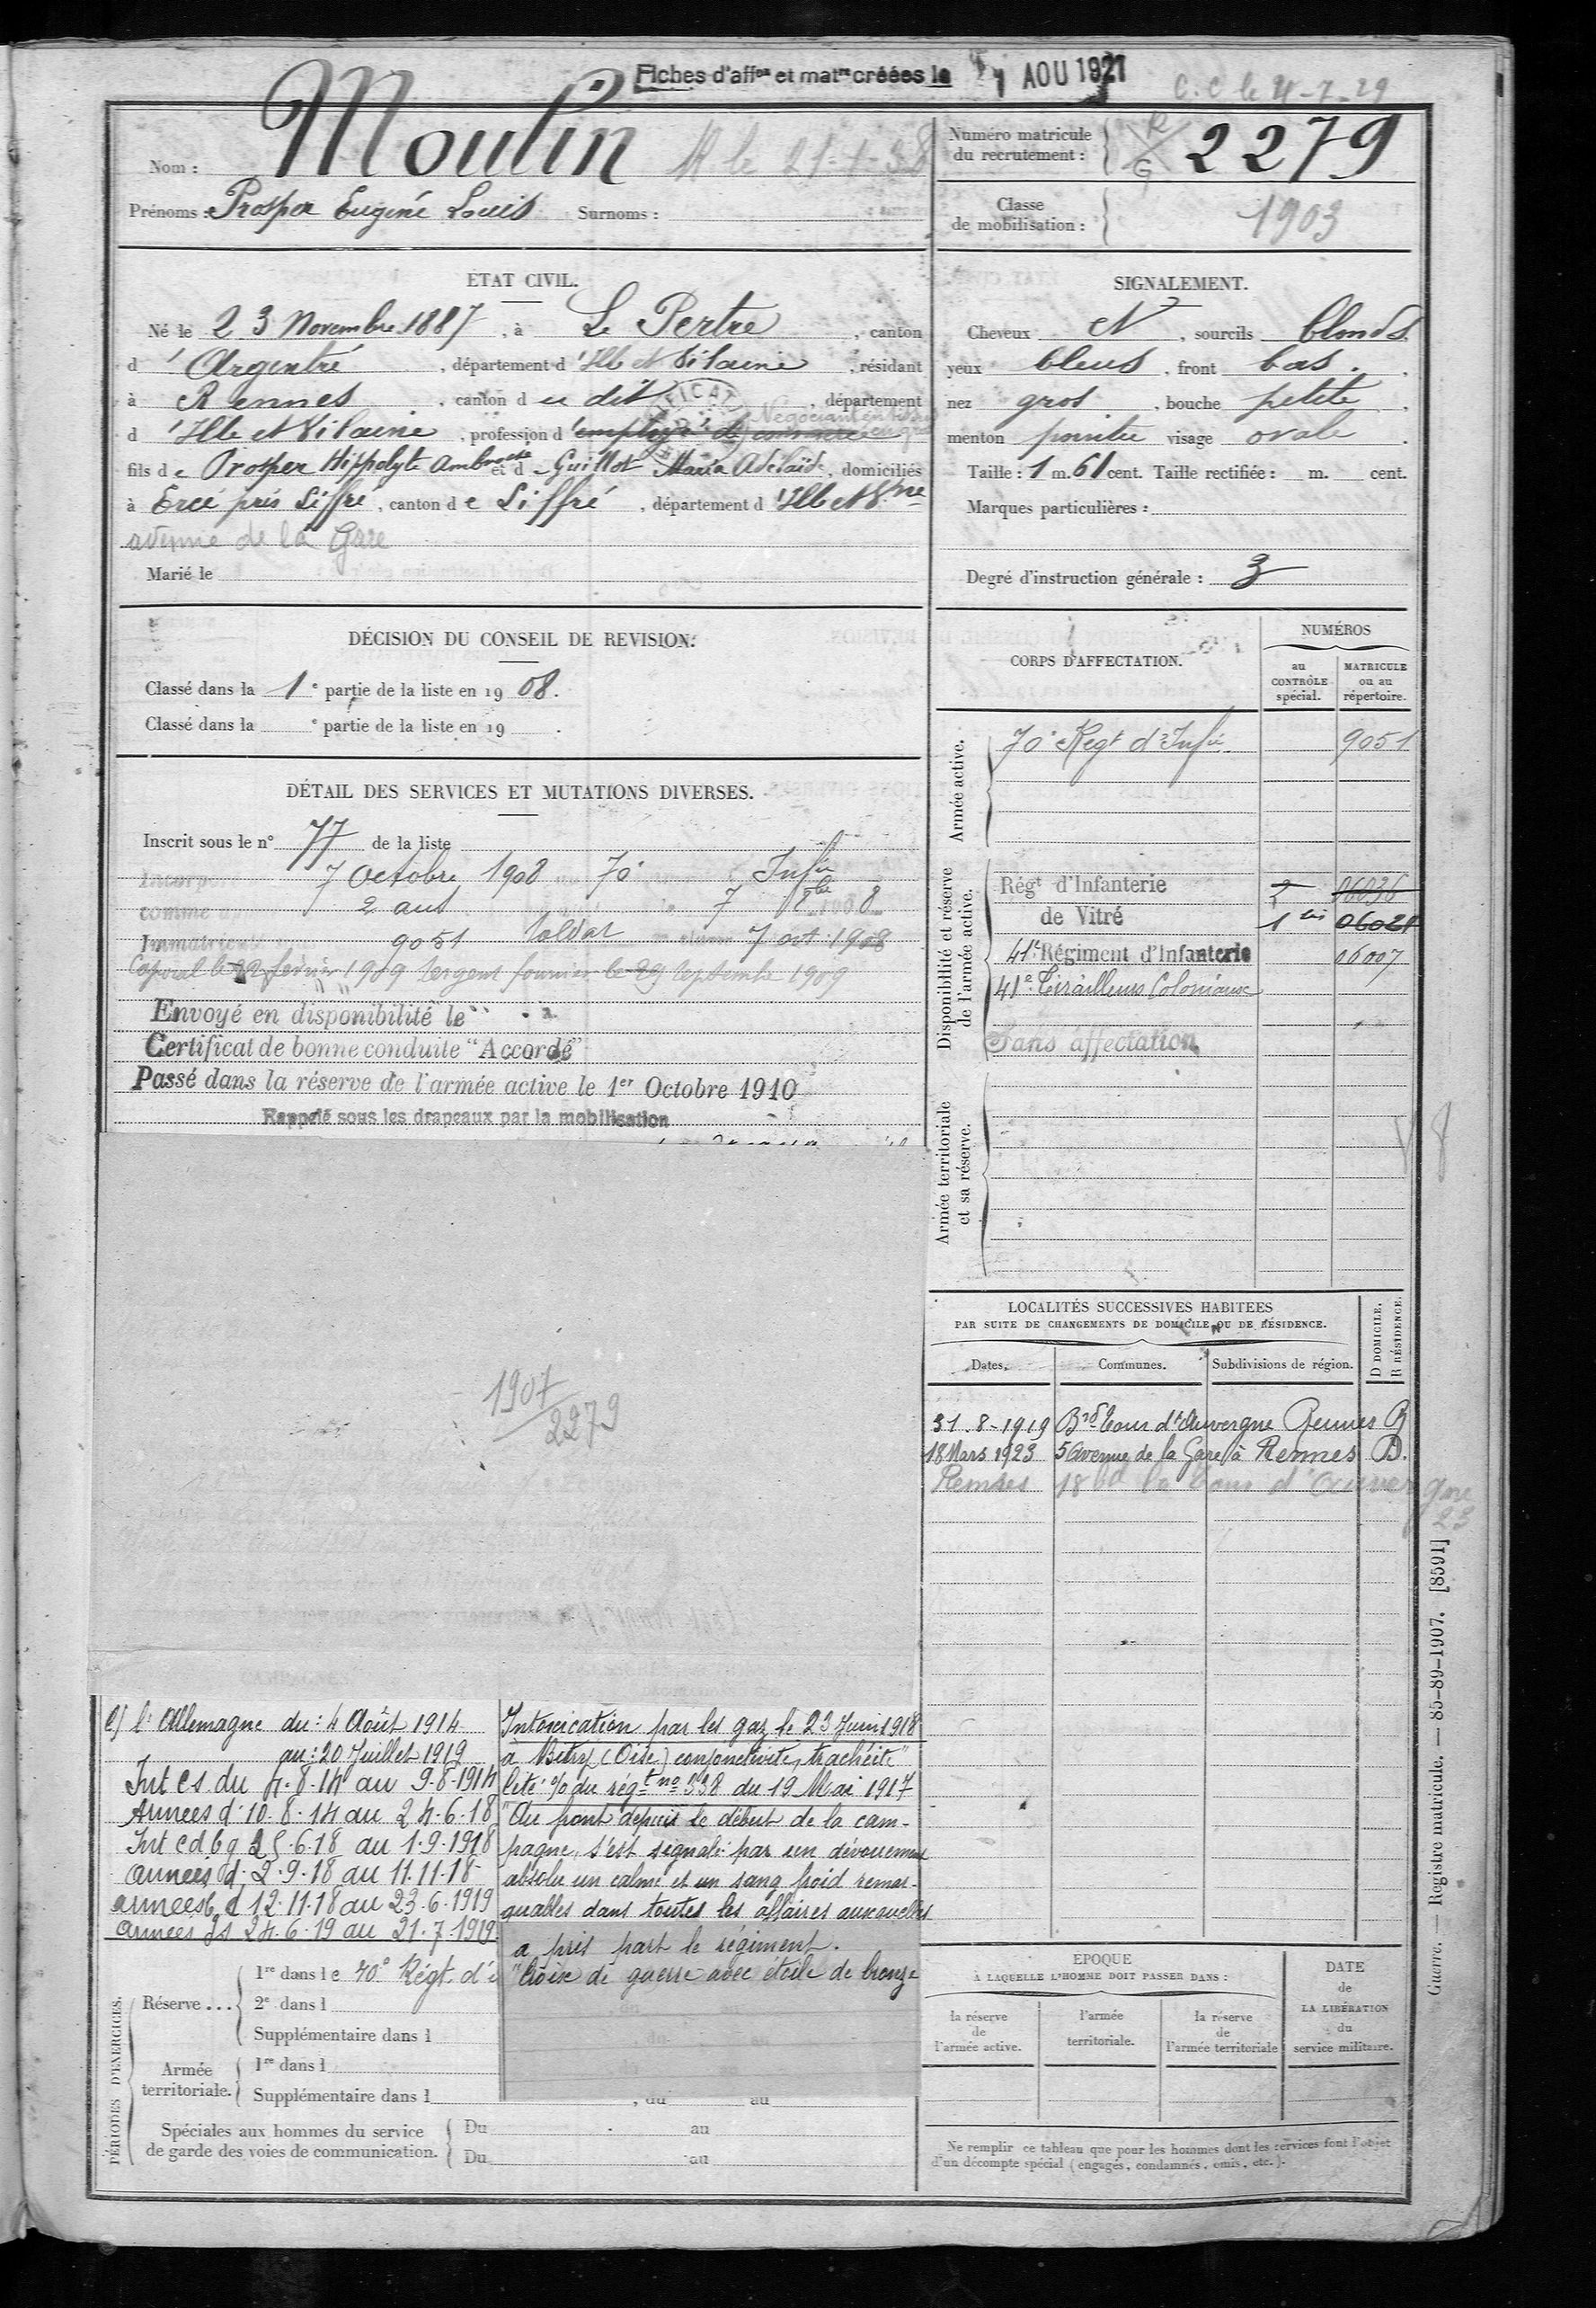 Fiches d'affon et matre créées le 1 AOU 1921
C.C le 4-7-29
Nom : Moulin R le 21-1-38
Prénoms : Prosper Eugène Louis Surnoms :
Numéro matricule du recrutement : R G 2279
Classe de mobilisation : 1903
ÉTAT CIVIL.
Né le 23 Novembre 1887, à Le Pertre, canton
d'Argentré, département d'Ille et Vilaine, résidant
à Rennes, canton du dit, département
d'Ille et Vilaine, profession d'employé de commerce Négociant
fils de Prosper Hippolyte Ambroise et de Guillot Maria Adelaïde, domiciliés
à Ercé près Liffré, canton de Liffré, département d'Ille et Vne
avenue de la Gare
Marié le
SIGNALEMENT.
Cheveux N, sourcils blonds
yeux bleus, front bas.
nez gros, bouche petite,
menton pointu visage ovale.
Taille : 1 m. 61 cent. Taille rectifiée : m. cent.
Marques particulières :
Degré d'instruction générale : 3
DÉCISION DU CONSEIL DE REVISION.
Classé dans la 1e partie de la liste en 1908.
Classé dans la e partie de la liste en 19 .
DÉTAIL DES SERVICES ET MUTATIONS DIVERSES.
Inscrit sous le n° 77 de la liste
Incorporé 7 Octobre 1908 70e Infie
comme 2 ans 7 8bre 1908
Immatricule 9051 Soldat 7 oct. 1908
Caporal le février 1909 Sergent fourrier le 29 Septembre 1909
Envoyé en disponibilité le
Certificat de bonne conduite "Accordé"
Passé dans la réserve de l'armée active le 1er Octobre 1910
Rappelé sous les drapeaux par la mobilisation
1907
2279
C/ l'Allemagne du : 4 Août 1914
au : 20 Juillet 1919
Int Cs. du 4.8.14 au 9.8.1914
Armées d. 10.8.14 au 24.6.18
Int C d b g 25.6.18 au 1.9.1918
Armées d. 2.9.18 au 11.11.18
armées d 12.11.18 au 23.6.1919
armées 24.6.19 au 21.7.1919
Intoxication par les gaz le 23 Juin 1918
à Bitry (Oise) "conjonctivite, trachéite"
Cité % du régt no 338 du 19 Mai 1917
"Au front depuis le début de la cam-
pagne, s'est signalé par un dévouement
absolu un calme et un sang froid remar-
quables dans toutes les affaires auxquelles
a pris part le régiment.
"Croix de guerre avec étoile de bronze
PÉRIODES D'EXERCICES.
Réserve ... 1re dans le 70e Régt d'i
2e dans l
Supplémentaire dans l
Armée territoriale. 1re dans l
Supplémentaire dans l , du au
Spéciales aux hommes du service
de garde des voies de communication. Du au
Du au
CORPS D'AFFECTATION.
NUMÉROS
au CONTRÔLE spécial.
MATRICULE ou au répertoire.
Armée active.
70e Regt d'Infie 9051
Disponibilité et réserve de l'armée active.
Régt d'Infanterie 06036
de Vitré 1 bis 06021
41e Régiment d'Infanterie 06007
41e Tirailleurs Coloniaux
Sans affectation
Armée territoriale et sa réserve.
8
LOCALITÉS SUCCESSIVES HABITÉES
PAR SUITE DE CHANGEMENTS DE DOMICILE OU DE RÉSIDENCE.
Dates. Communes. Subdivisions de région. D DOMICILE. R RÉSIDENCE.
31.8-1919 Brd Tour d'Auvergne Rennes R
18 Mars 1923 5 Avenue de la Gare à Rennes D.
Rennes 18 bd la Tour d'Auvergne
23
EPOQUE
À LAQUELLE L'HOMME DOIT PASSER DANS :
la réserve de l'armée active.
l'armée territoriale.
la réserve de l'armée territoriale
DATE de LA LIBÉRATION du service militaire.
Ne remplir ce tableau que pour les hommes dont les services font l'objet
d'un décompte spécial (engagés, condamnés, omis, etc.).
Guerre. — Registre matricule. — 85-89-1907. [8591]